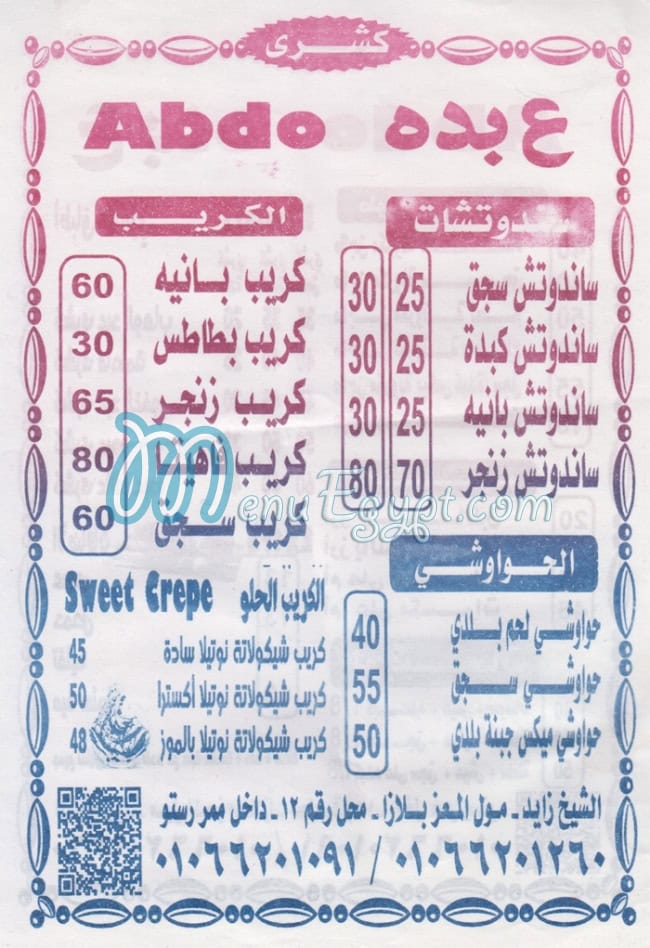 كشرى
عبده Abdo
سندوتشات
ساندوتش سجق 25 30
ساندوتش كبدة 25 30
ساندوتش بانيه 25 30
ساندوتش زنجر 70 80
الحواوشي
حواوشي لحم بلدي 40
حواوشي سجق 55
حواوشي ميكس جبنة بلدي 50
الكريب
كريب بانيه 60
كريب بطاطس 30
كريب زنجر 65
كريب فاهيتا 80
كريب سجق 60
الكريب الحلو Sweet Crepe
كريب شيكولاتة نوتيلا سادة 45
كريب شيكولاتة نوتيلا أكسترا 50
كريب شيكولاتة نوتيلا بالموز 48
الشيخ زايد - مول المعز بلازا - محل رقم ١٢ - داخل ممر رستو
٠١٠٦٦٢٠١٢٦٠ / ٠١٠٦٦٢٠١٠٩١
MenuEgypt.com